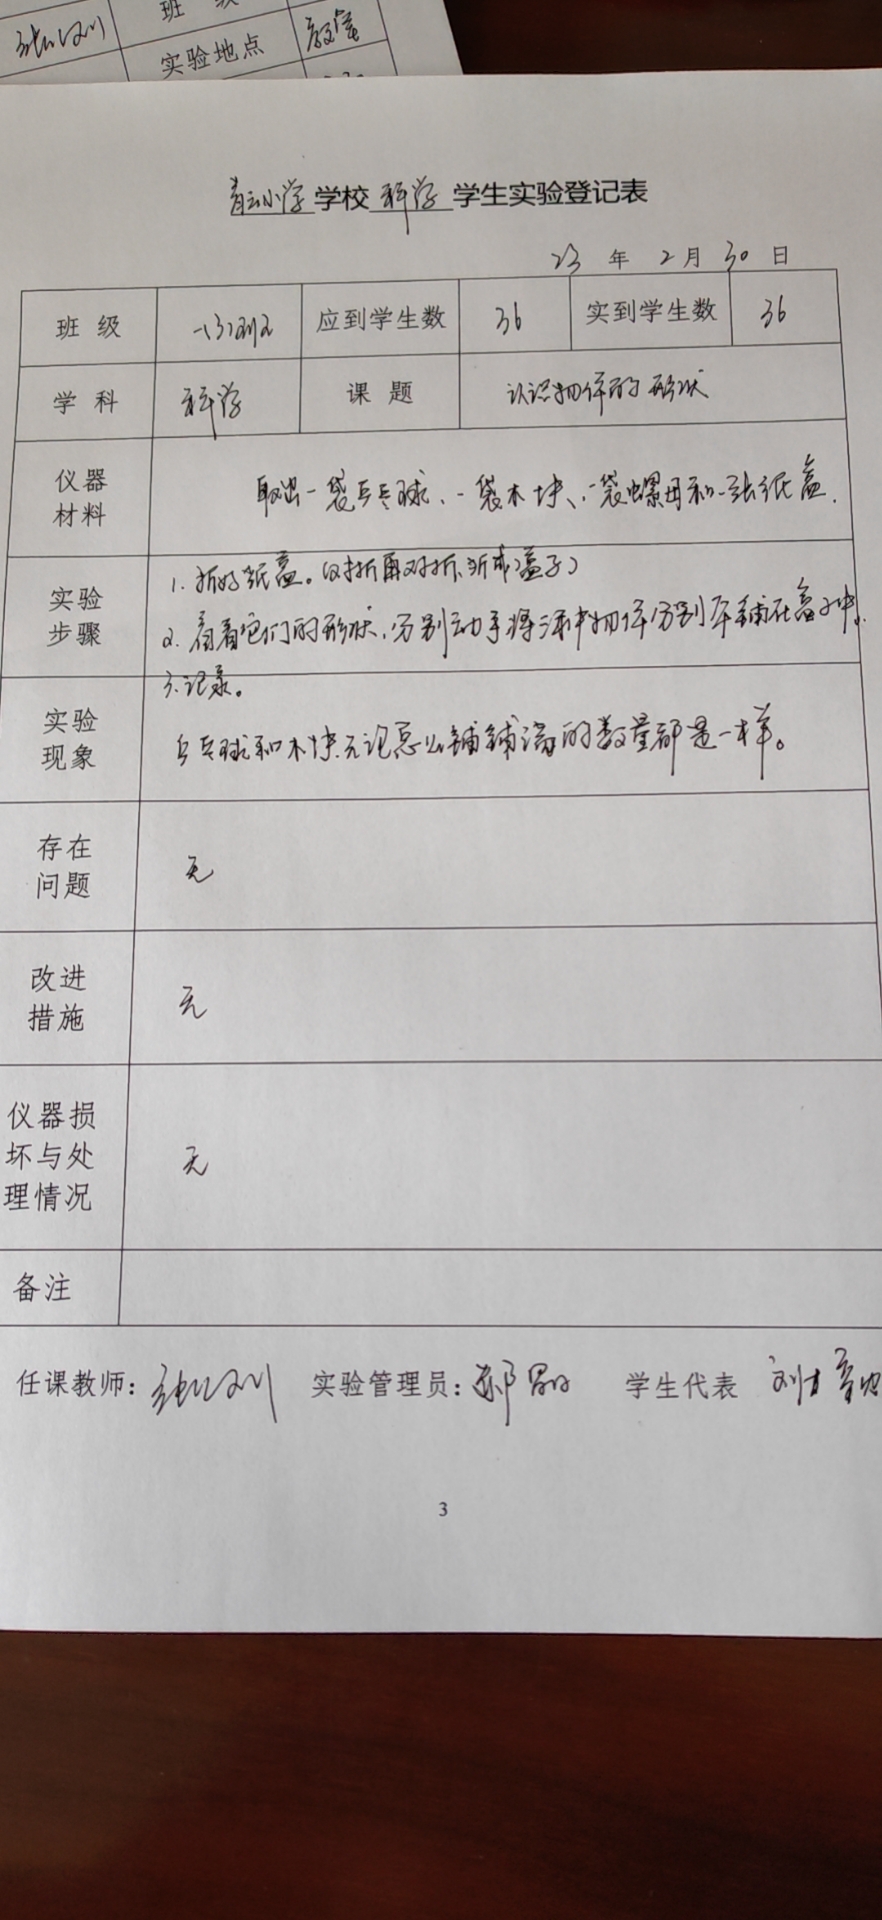 班 级
实验地点 教室
青云小学 学校 科学 学生实验登记表
23 年 2 月 30 日
班 级 一(3)班 应到学生数 36 实到学生数 36
学 科 科学 课 题 认识物体的形状
仪器 材料 取出一袋乒乓球、一袋木块、一袋螺母和一张纸盒.
实验 步骤 1. 折好纸盒。(对折再对折、折成盒子)
2. 看看它们的形状,分别动手将袋中物体分别平铺在盒子中。
3.记录。
实验 现象 乒乓球和木块无论怎么铺铺满的数量都是一样。
存在 问题 无
改进 措施 无
仪器损 坏与处 理情况 无
备注
任课教师: 实验管理员: 郝 学生代表 刘
3